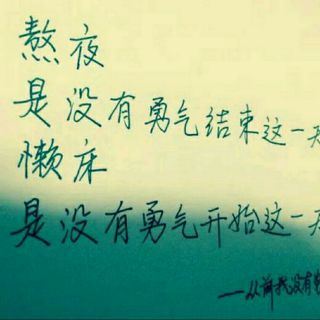 熬夜
是没有勇气结束这一天
懒床
是没有勇气开始这一天
——从前我没有